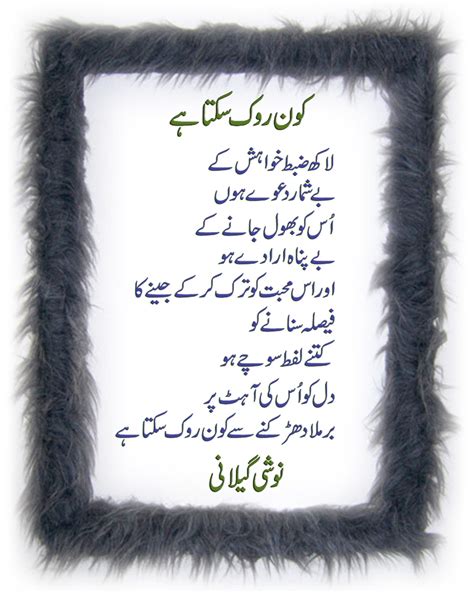 کون روک سکتا ہے
لاکھ ضبط خواہش کے
بے شمار دعوے ہوں
اُس کو بھول جانے کے
بے پناہ ارادے ہو
اور اس محبت کو ترک کر کے جینے کا
فیصلہ سنانے کو
کتنے لفظ سوچے ہو
دل کو اُس کی آہٹ پر
برملا دھڑکنے سے کون روک سکتا ہے
نوشی گیلانی